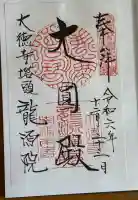 奉拝
令和六年
十一月二十二日
大圓殿
大徳寺塔頭
龍源院